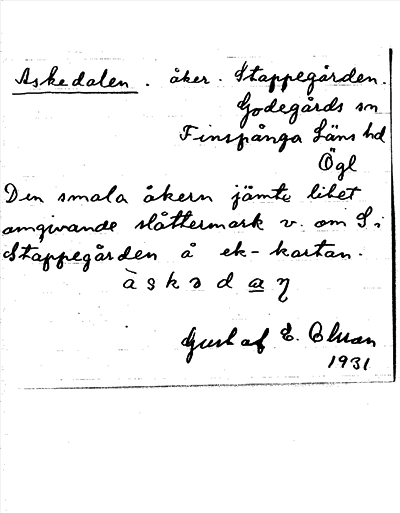 Askedalen. åker. Stappegården.
Godegårds sn
Finspånga Läns hd
Ögl
Den smala åkern jämte litet
omgivande slåttermark v. om S. i
Stappegården å ek-kartan.
à s k ɔ d a ŋ
Gustaf E.
1931